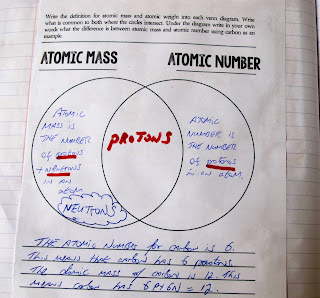 Write the definition for atomic mass and atomic weight into each venn diagram. Write
what is common to both where the circles intersect. Under the diagram write in your own
words what the difference is between atomic mass and atomic number using carbon as an
example.
ATOMIC MASS
ATOMIC NUMBER
ATOMIC
MASS IS
THE NUMBER
OF protons
+ NEUTRONS
IN AN
ATOM.
NEUTRONS
PROTONS
ATOMIC
NUMBER IS
THE NUMBER
OF protons
in an atom.
THE ATOMIC NUMBER for carbon is 6.
This means that carbon has 6 protons.
The atomic mass of carbon is 12. This
means carbon has 6P+ 6N = 12.